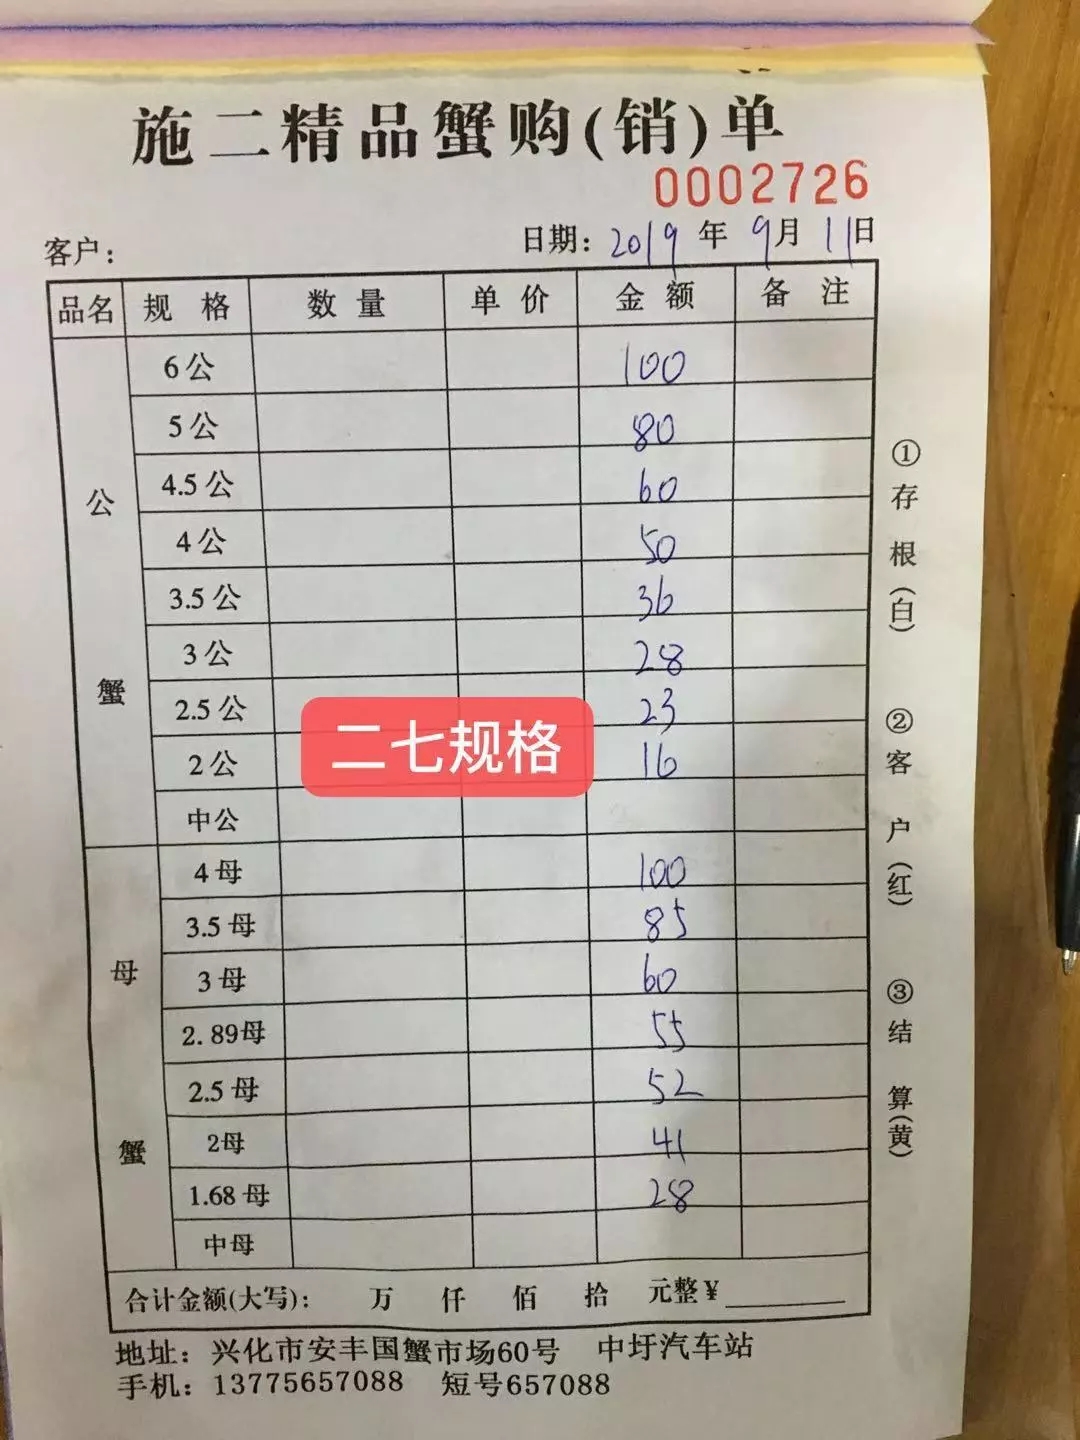 施二精品蟹购(销)单
0002726
客户： 日期: 2019 年 9月 11日
品名 规格 数量 单价 金额 备注
公蟹
6公 100
5公 80
4.5公 60
4公 50
3.5公 36
3公 28
2.5公 23
二七规格
2公 16
中公
母蟹
4母 100
3.5母 85
3母 60
2.89母 55
2.5母 52
2母 41
1.68母 28
中母
合计金额(大写)： 万 仟 佰 拾 元整¥
地址：兴化市安丰国蟹市场60号 中圩汽车站
手机：13775657088 短号657088
①存根(白) ②客户(红) ③结算(黄)